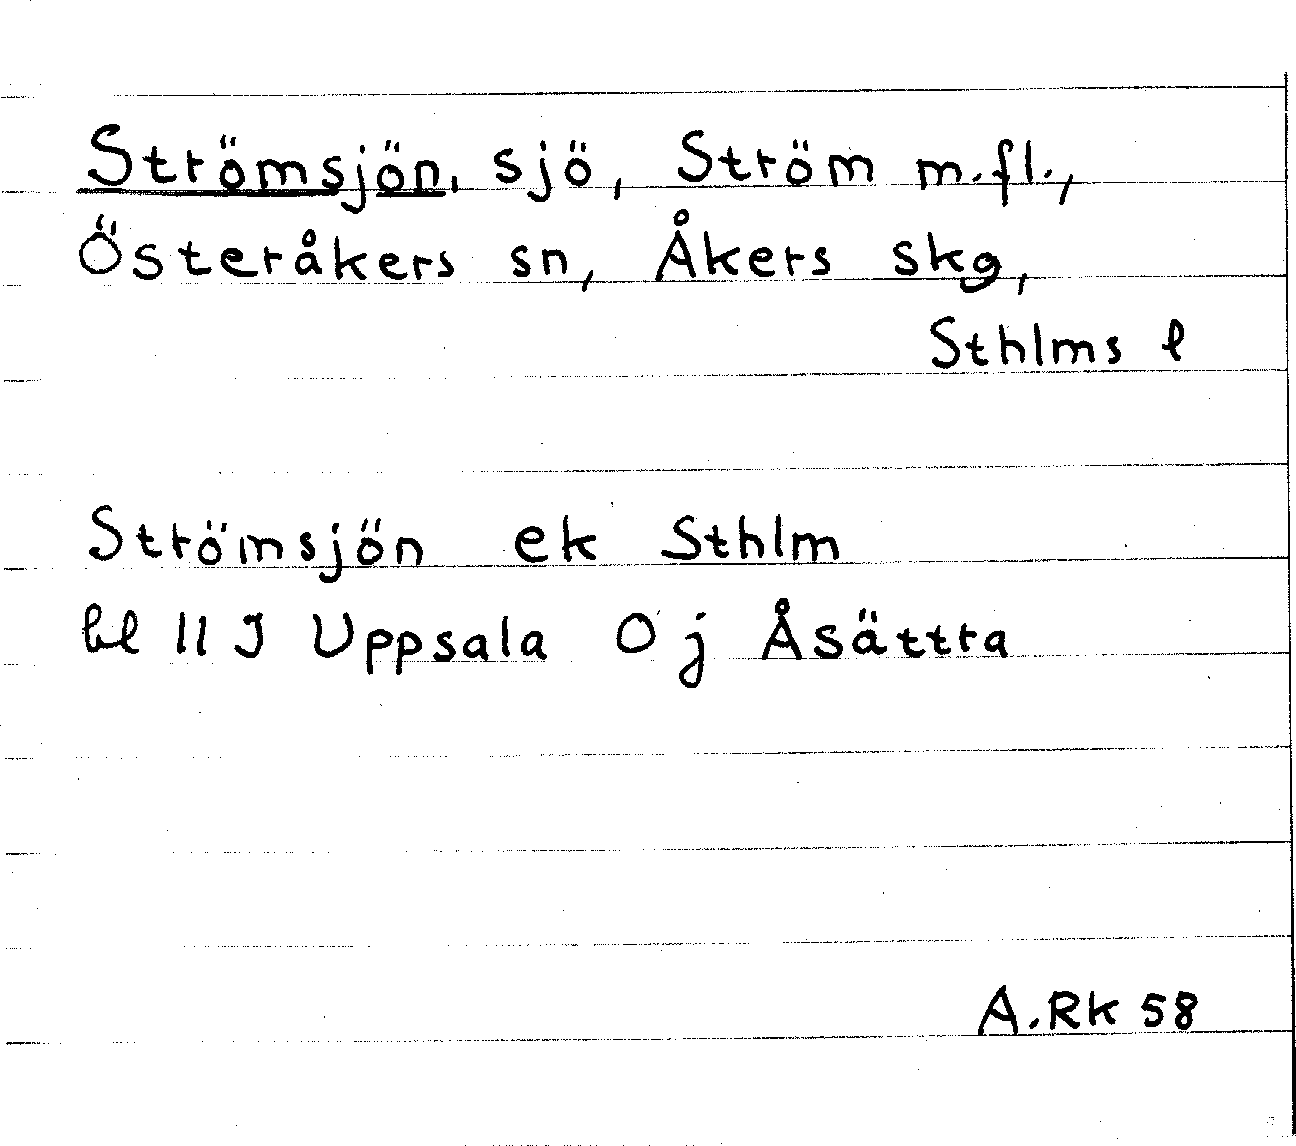 Strömsjön, sjö, Ström m.fl.,
Österåkers sn, Åkers skg,
Sthlms l
Strömsjön ek Sthlm
bl 11 J Uppsala O j Åsättra
A.Rk 58